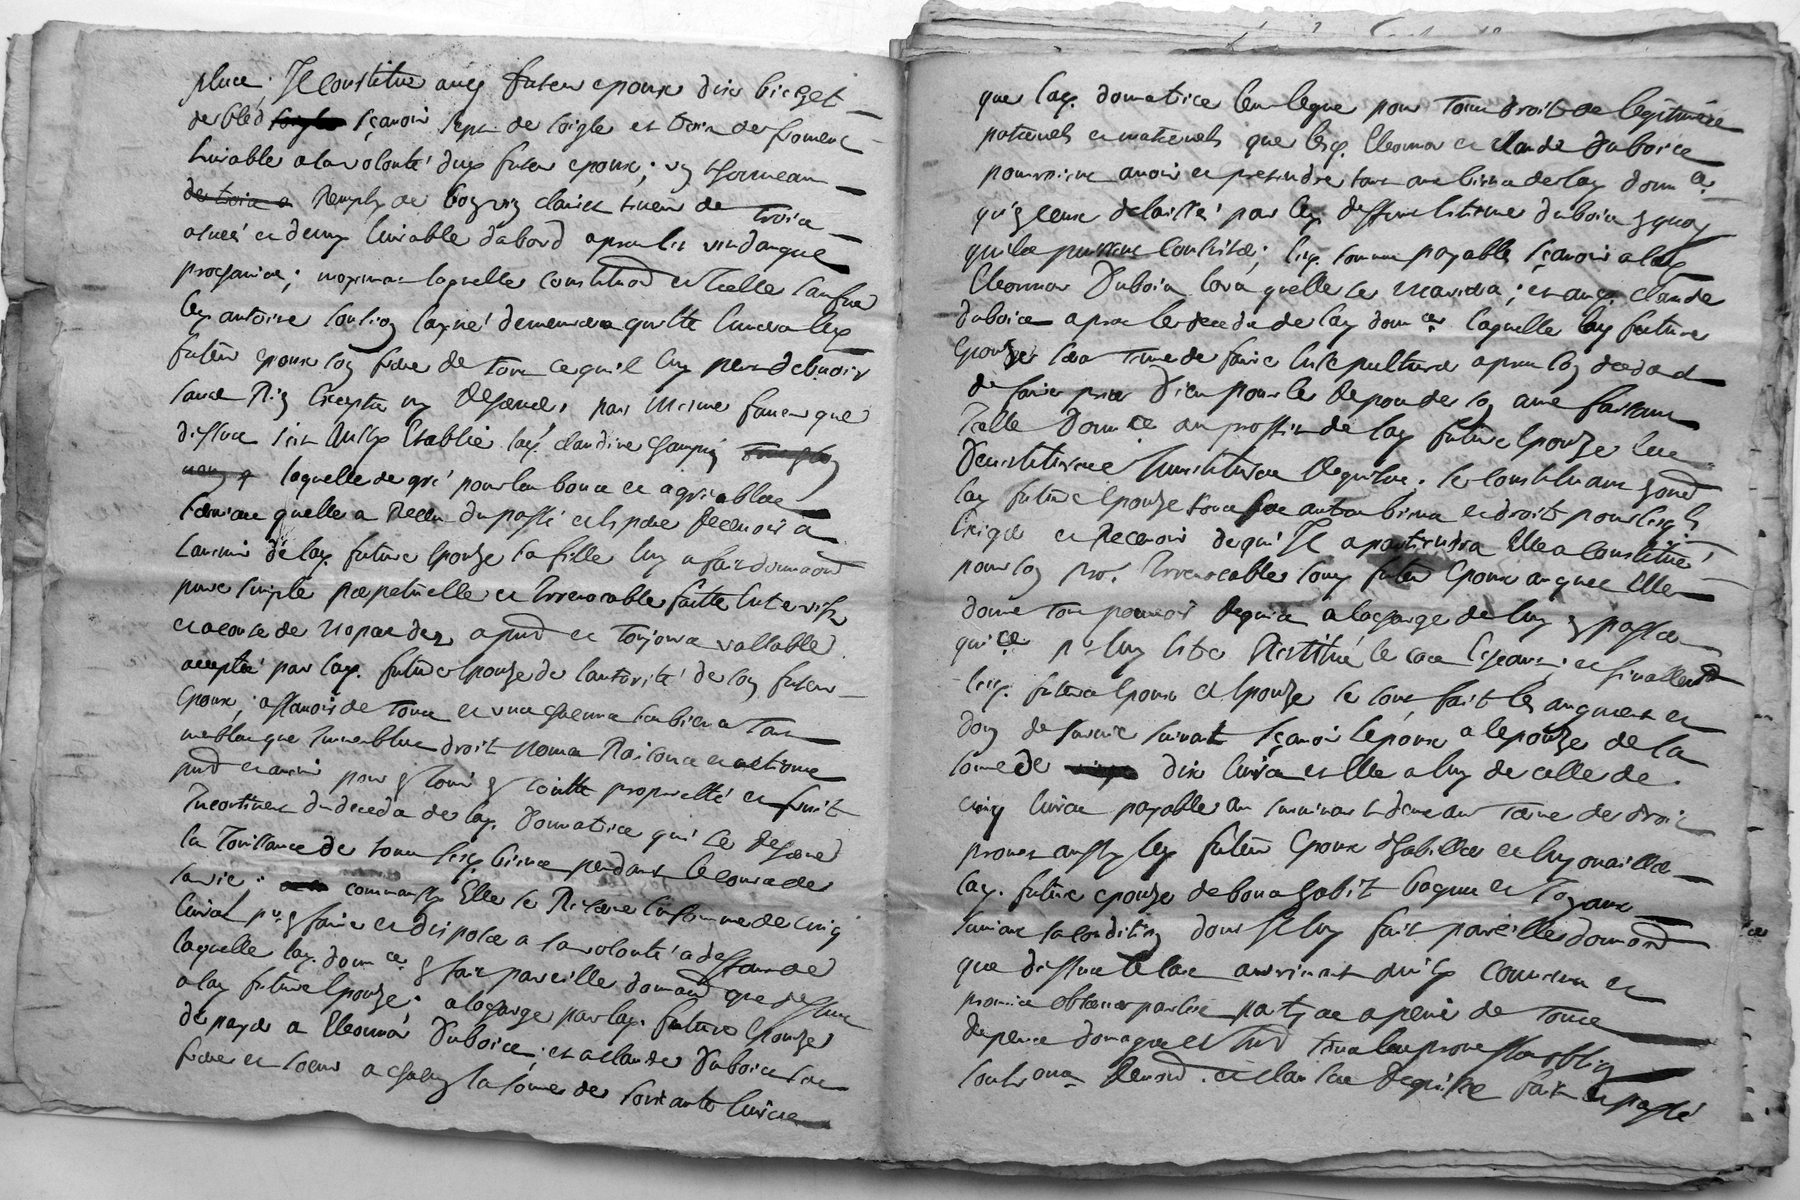 place; Il constitue aud futeur epoux dix bichet
de bléd sçavoir sept de soigle et trois de froment
livrable a la volonté dud futeur epoux; un thonneau
remply de bon vin clairet tineu de troice
asnés et demy livrable d'abord apres les vendanges
prochaines; moyenant laquelle constituon et icelle
led antoine laysné demeurera quitte envers led
futeur epoux son frere de tout ce qu'il luy peut debvoir
sans rien excepter ny reserver, par mesme faveur que
dessus s'est aussy establie lad. claudine
laquelle de gré pour les bons et agreables
services quelle a receu du passé et espere recevoir a
l'avenir de lad. future epouze sa fille luy a fait donnaon
pure simple perpetuelle et irrevocable faitte entre vifz
et a cause de nopces des a pnt et toujours vallable
acepté par lad. future epouze de l'autorité de son futeur
epoux; assavoir de tous et uns chacuns ses biens tant
meubles que immeubles droit noms raisons et actions
pnt et avenir pour en jouir en toutte proprietté et fruit
incontinent du deceda de lad. donnatrice qui se reserve
la jouissance de tous lesd biens pendant le cours de
sa vie; comm'aussy elle se reserve la somme de cinq
livres pr en faire et disposer a sa volonté a deffaut de
laquelle lad. donnce en fait pareille donnaon que dessus
a lad future epouze; a la charge par lad. future epouze
de payer a Eleonnor Duboice; et a claude Duboice ses
frere et soeur a chacun la somme de soixante livres
que lad. donnatrice leur legue pour tous droit de legitime
paternels et maternels que lesd. Eleonnor et claude Duboice
pourroient avoir et pretendre tant aux biens de lad donnce
qu'en ceux delaissé par led. deffunt Estienne duboice en quoy
qu'ils puissent consister; lesd. somme payable sçavoir a lad
Eleonnor Duboice lors quelle se mariera; et aud. claude
duboice apres le deceda de lad donnce laquelle lad future
epouze sera tenue de faire ensepulturer apres son deceda et
de faire prier Dieu pour le repos de son ame faisant
telle donnce au proffit de lad future epouze les
Devestiture investiture requise; se constituant
lad future epouze tous ses autres biens et droits pour lesqls
exiger et recevoir de qui Il apartiendra elle a constitué
pour son pror. irrevocable sond futeur epoux auquel elle
donne tout pouvoir requis a la charge de luy en passer
quittce pr luy estre restitué le cas escheant; et finallemt
lesd. futeurs epoux et epouze se sont fait les augment et
don de survie suivant sçavoir l'epoux a l'epouze de la
some de dix livres et elle a luy de celle de
cinq livres payable au survivant dans au terme de droit
promet aussy led futeur epoux d'habiller et enjouailler
lad. future epouze de bons habit bagues et joyaux
suivant sa condition dont Il luy fait pareille donnaon
que dessus le cas arrivant ainsy convenu et
promis observer par les parties a peine de tous
depens domages et intd sous leurs promesses oblign
soubz renond. et clauses requise fait et passé